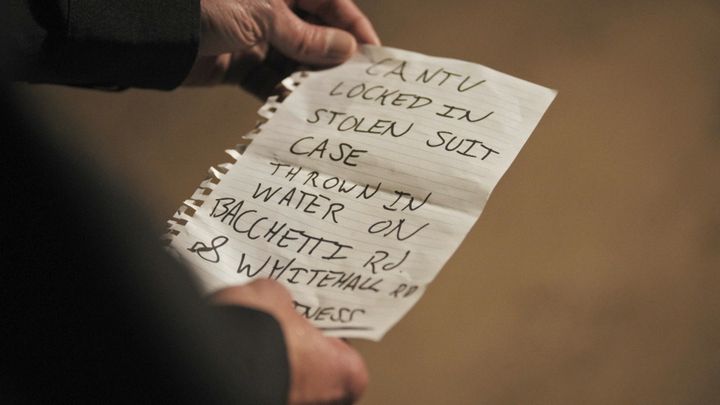 CANTU
LOCKED IN
STOLEN SUIT
CASE
THROWN IN
WATER ON
BACCHETTI RD.
& WHITEHALL RD